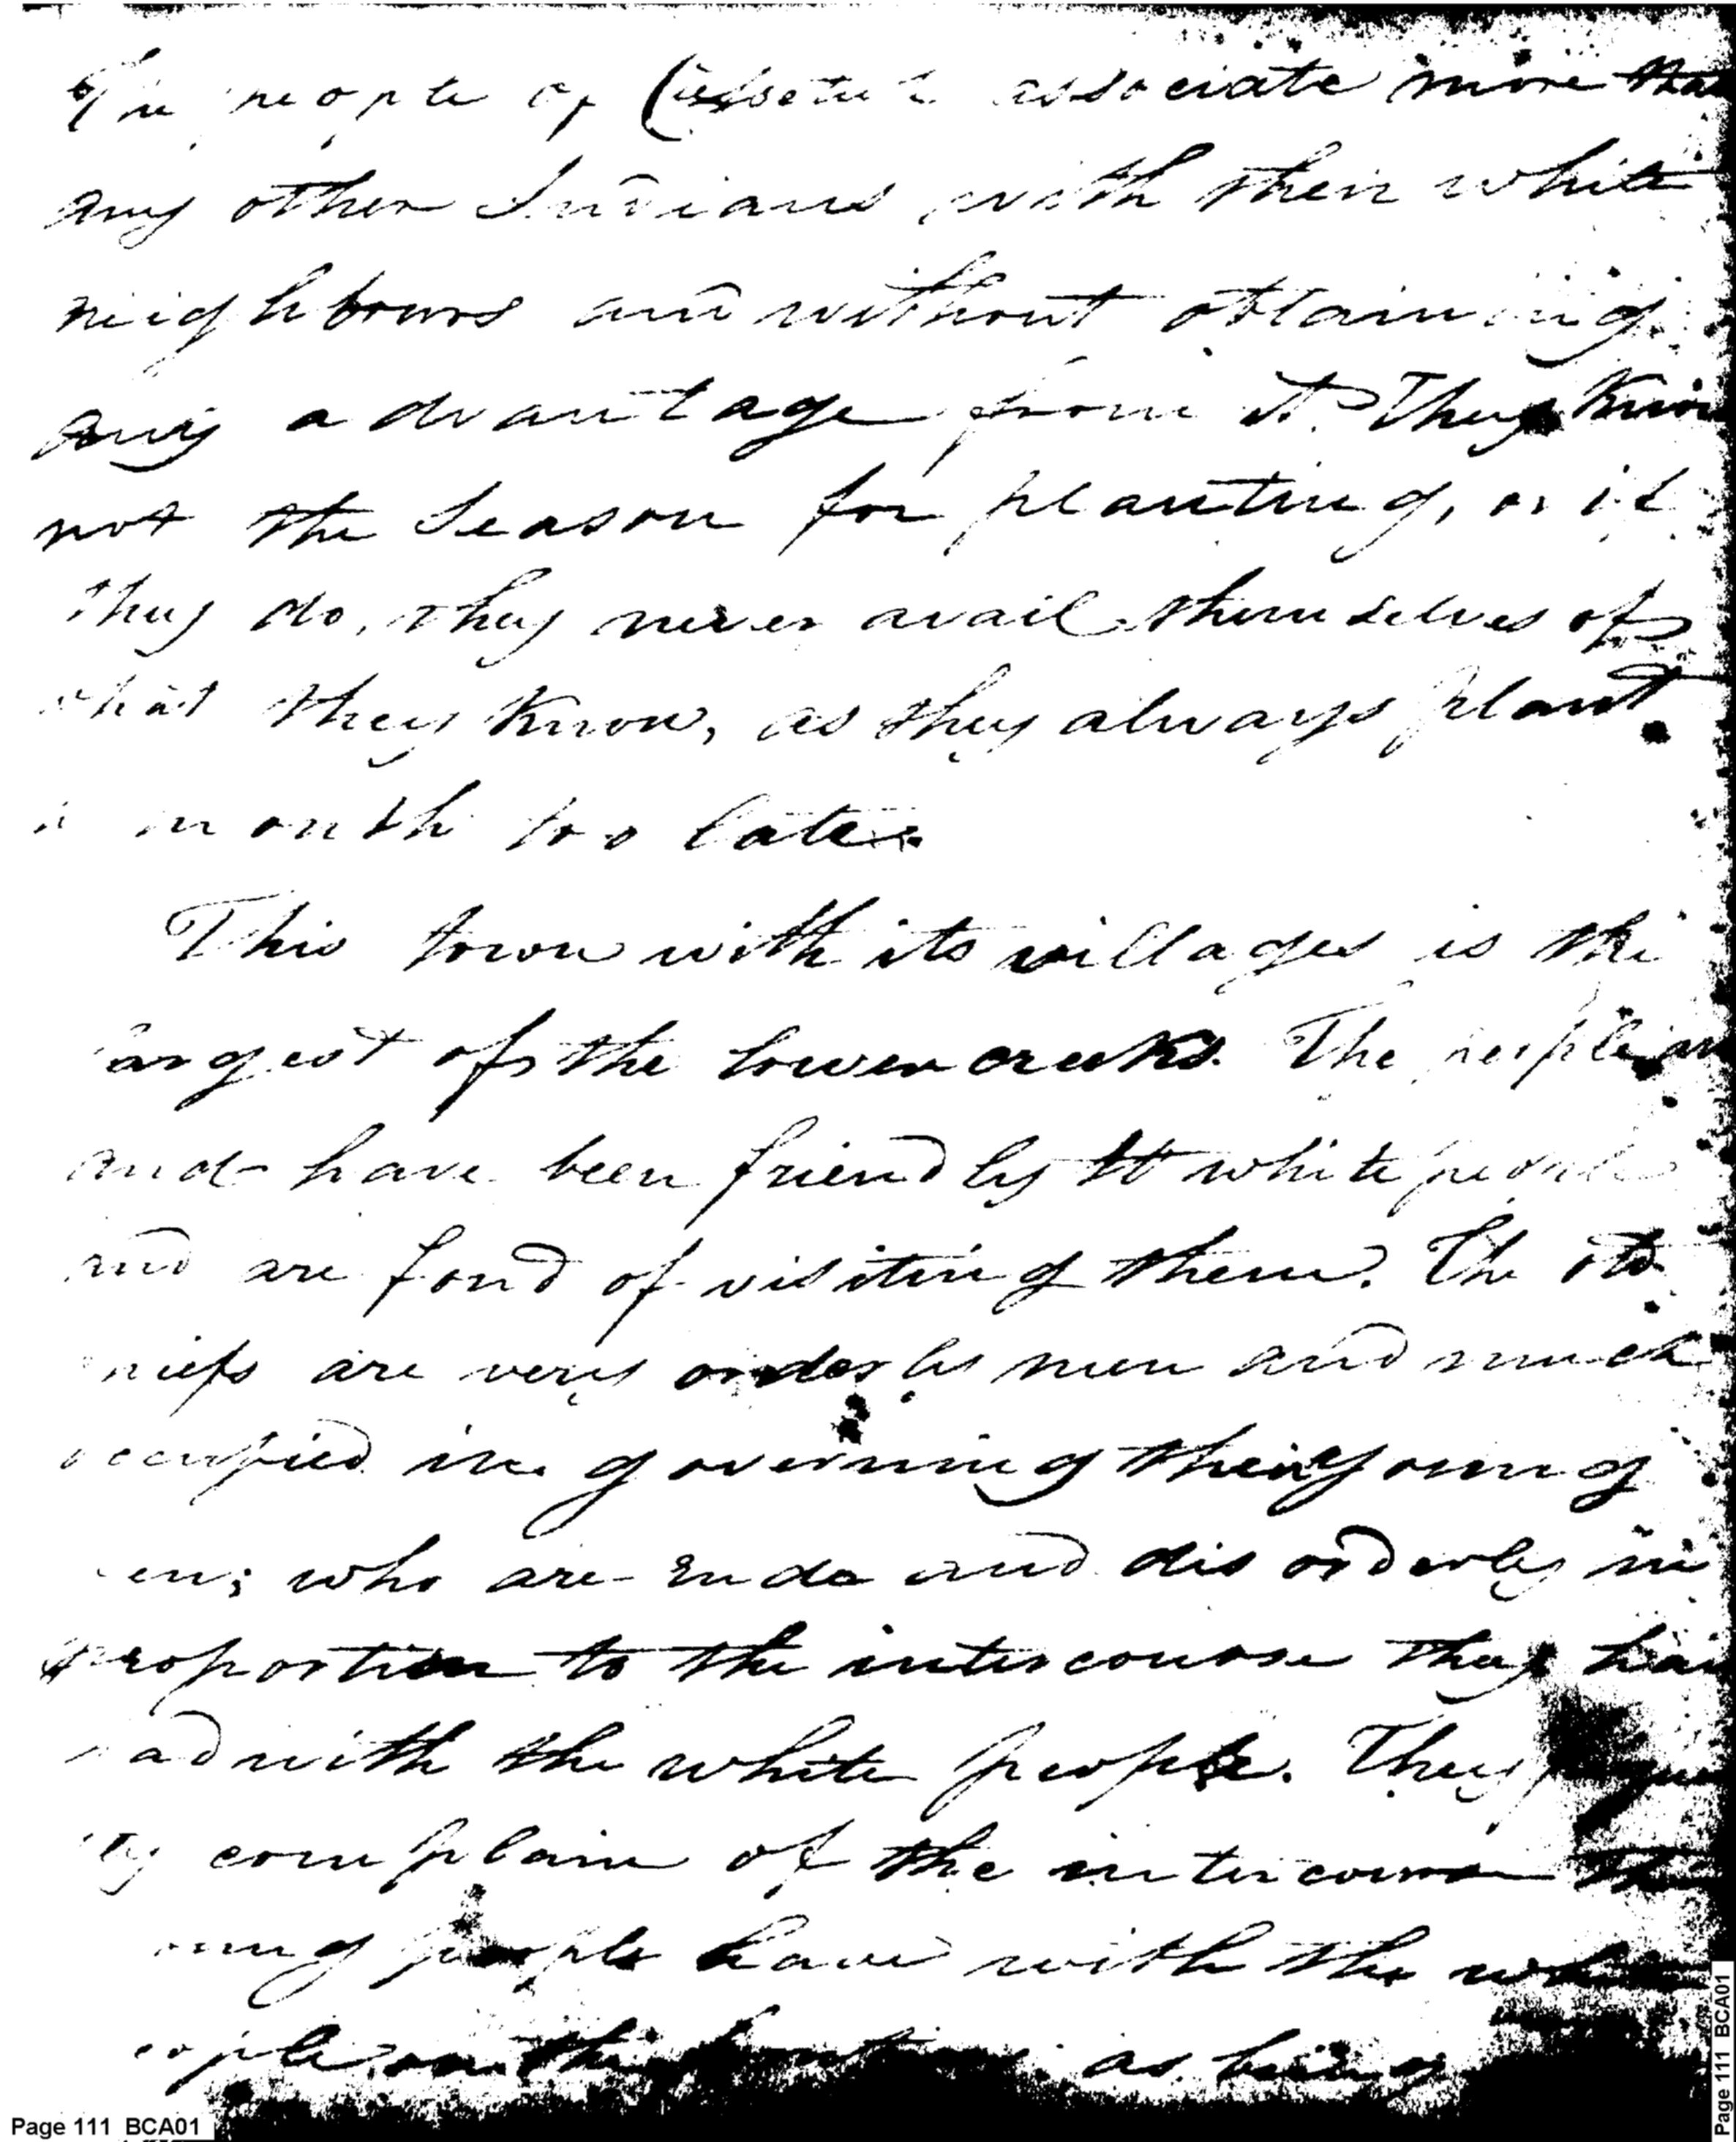 The people of Cussetuh associate more than
any other Indians with their white
neighbours and without obtaining
any advantage from it. They Know
not the Season for planting, or if
they do, they never avail themselves of
what they Know, as they always plant
a month too late.
This town with its villages is the
largest of the lower creeks. The people are
and have been friendly to white people
and are fond of visiting them. The old
chiefs are very orderly men and much
occupied in governing their young
men; who are rude and disorderly in
proportion to the intercourse they have
had with the white people. They
complain of the intercourse the
young people have with the white
people on the as being
Page 111 BCA01
Page 111 BCA01